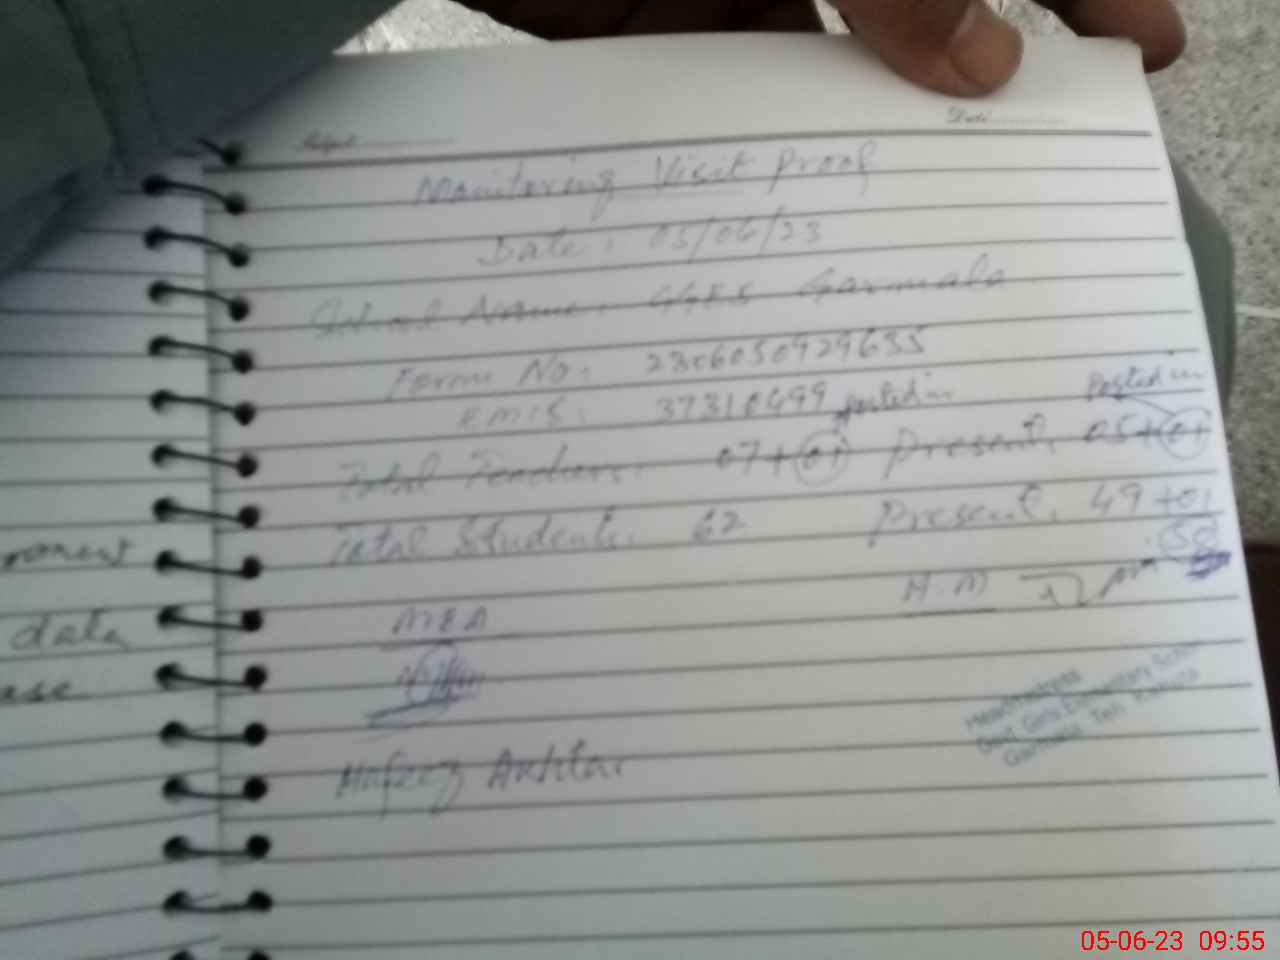 Subject
Date:
Monitoring Visit Proof
Date: 05/06/23
School Name: GGES Garmala
Form No: 2306050929655
EMIS: 37310499
posted in
posted in
Total Teachers: 07+01 Present: 05+01
Total Students: 62 Present: 49+01
50
MEA
H.M
Headmistress
Govt. Girls Elementary School
Garmala Teh. Kahuta
Hafeez Akhtar
data
05-06-23 09:55